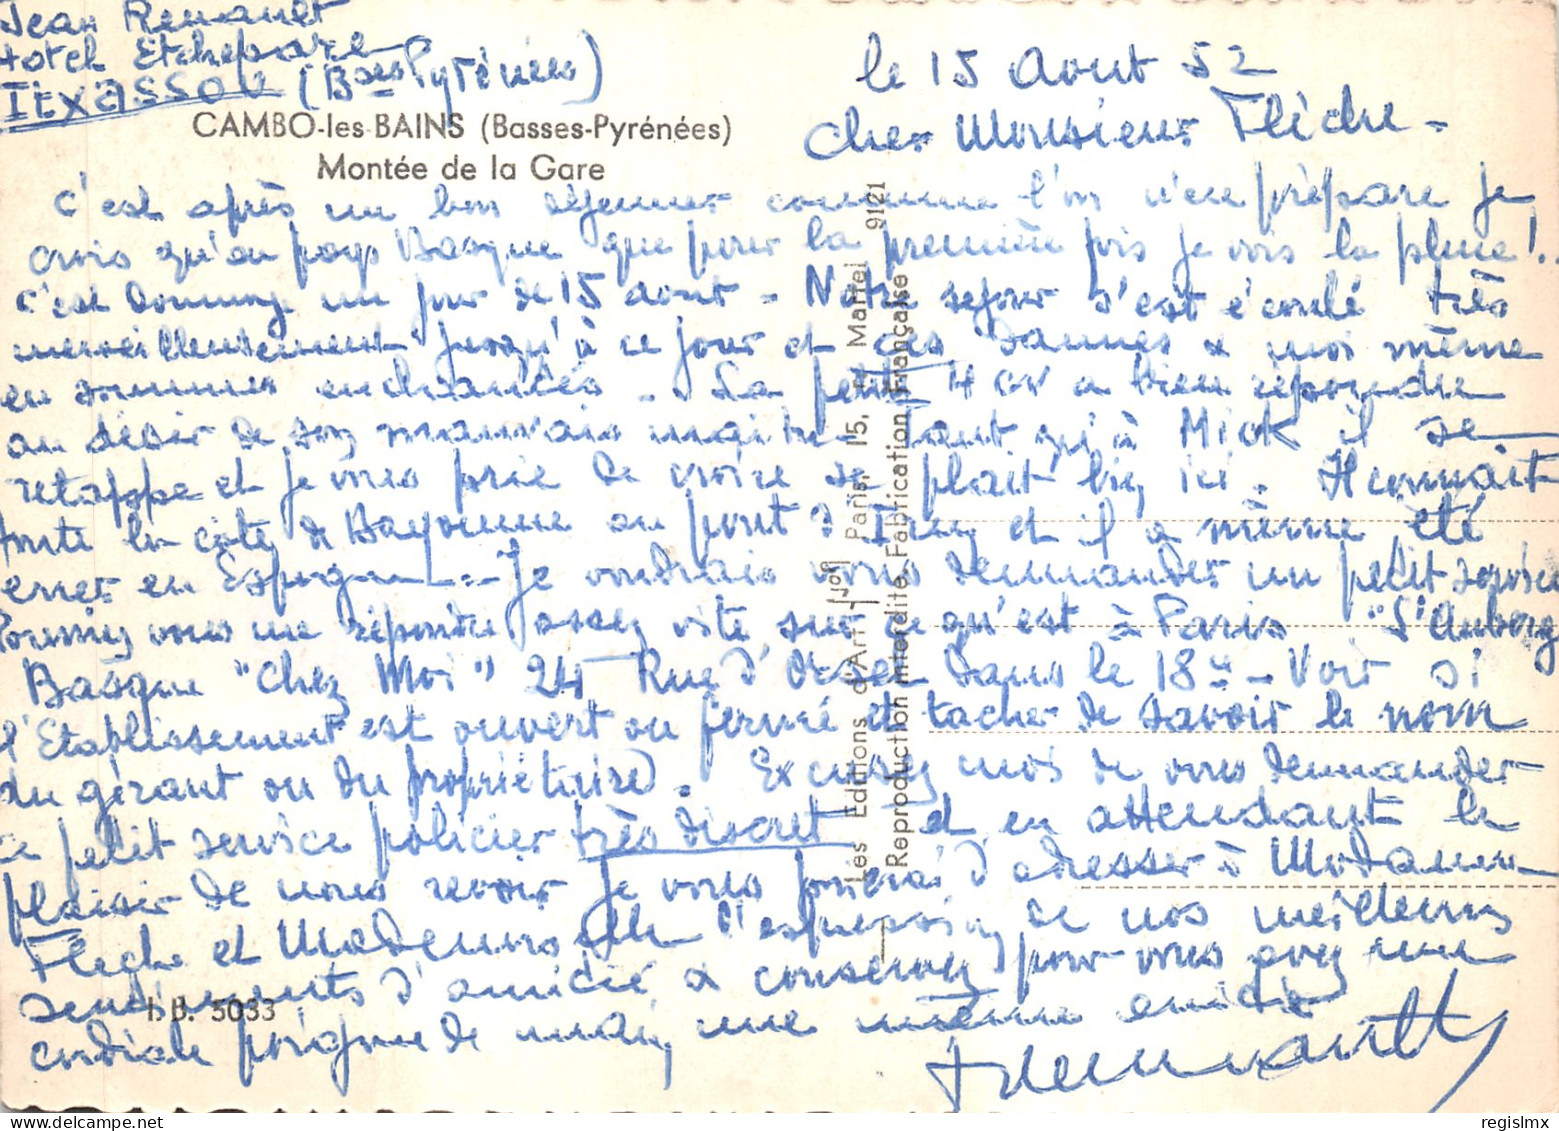 Jean Renault
Hotel Etchepare
Itxassou (Bses Pyrénées)
CAMBO-les-BAINS (Basses-Pyrénées)
Montée de la Gare
le 15 Aout 52
Cher Monsieur Flèche -
c'est après un bon déjeuner comme l'on n'en prépare je
crois qu'au pays Basque que pour la première fois je vois la pluie !..
c'est dommage un jour de 15 aout - Notre sejour s'est écoulé très
merveilleusement jusqu'à ce jour et ces dames & moi même
en sommes enchantés - La petite 4 cv a bien répondu
au désir de son mauvais maitre Tant qu'à Mick il se
retappe et je vous prie de croire se plait bien ici. Il connait
toute la côte de Bayonne au pont d'Irun et il a même été
errer en Espagne - Je voudrais vous demander un petit service
Pourriez vous me répondre assez vite sur ce qu'est à Paris "L'Auberg
Basque "Chez Moi" 24 Rue d' Orsel dans le 18e - Voir si
l'Etablissement est ouvert ou fermé et tacher de savoir le nom
du gérant ou du propriétaire). Excusez moi de vous demander
ce petit service policier très discret et en attendant le
plaisir de vous revoir je vous prierai d'adresser à Madame
Flèche et Mademoiselle l'expression de nos meilleurs
sentiments d'amitié & conservez pour vous avez une
cordiale poignée de main une même amitié
JRenault
I.B. 5033
Les Editions d'Art Yvon Paris, 15, r. Martel 9121
Reproduction interdite. Fabrication Française
regislmx